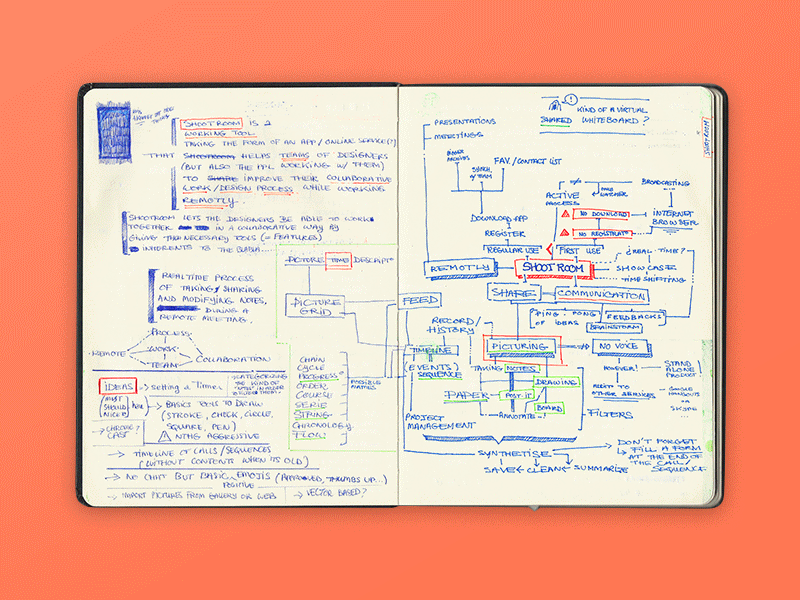 SHOOTROOM IS A
WORKING TOOL
TAKING THE FORM OF AN APP/ONLINE SERVICE(?)
THAT SHOOTROOM HELPS TEAMS OF DESIGNERS
(BUT ALSO THE PPL WORKING W/ THEM)
TO SHARE IMPROVE THEIR COLLABORATIVE
WORK/DESIGN PROCESS WHILE WORKING
REMOTLY.
SHOOTROOM LETS THE DESIGNERS BE ABLE TO WORK
TOGETHER IN A COLLABORATIVE WAY BY
GIVING THE NECESSARY TOOLS (= FEATURES)
INHERENTS TO THE
REAL TIME PROCESS
OF TAKING/SHARING
AND MODIFYING NOTES.
DURING A
REMOTE MEETING.
PROCESS
REMOTE WORK COLLABORATION
TEAM
PICTURE TIME DESCRIPT°
PICTURE
GRID
CHAIN
CYCLE
PROGRESS°
ORDER
COURSE
SERIE
STRING
CHRONOLOGY
FLOW
POSSIBLE
NAMES
IDEAS → Setting a Timer
MUST
SHOULD HAVE
NICE
→ BASICS TOOLS TO DRAW
(STROKE, CHECK, CIRCLE,
SQUARE, PEN)
NTHG AGGRESSIVE
→ CHROME?
CAST
→ TIMELINE OF CALLS/SEQUENCES
(WITHOUT CONTENTS WHEN ITS OLD)
→ NO CHAT BUT BASIC EMOJIS (APPROVED, THUMBS UP...)
POSITIVE
→ IMPORT PICTURES FROM GALLERY OR WEB → VECTOR BASED?
KIND OF A VIRTUAL
SHARED WHITEBOARD?
SHOOTROOM
PRESENTATIONS
MEETINGS
FAV/CONTACT LIST
W/TEAM
DOWNLOAD APP
REGISTER
REGULAR USE
ACTIVE
PROCESS
BROADCASTING
NO DOWNLOAD
NO REGISTRAT°
INTERNET
BROWSER
FIRST USE
REMOTLY
SHOOTROOM
¿REAL-TIME?
SHOWCASE
TIME SHIFTING
SHARE
COMMUNICATION
"PING-PONG"
OF IDEAS
FEEDBACKS
BRAINSTORM
FEED
RECORD/
HISTORY
TIMELINE
(EVENTS)
SEQUENCE
PICTURING
NO VOICE
TAKING NOTES
DRAWING
PAPER
POST-IT
BOARD
ANNOTATE
FILTERS
HOWEVER!
STAND
ALONE
PRODUCT
OTHER SERVICES
- GOOGLE
HANGOUTS
OR
SKYPE
PROJECT
MANAGEMENT
SYNTHETISE
SAVE CLEAN SUMMARIZE
DON'T FORGET
FILL A FORM
AT THE END OF
THE CALL/
SEQUENCE